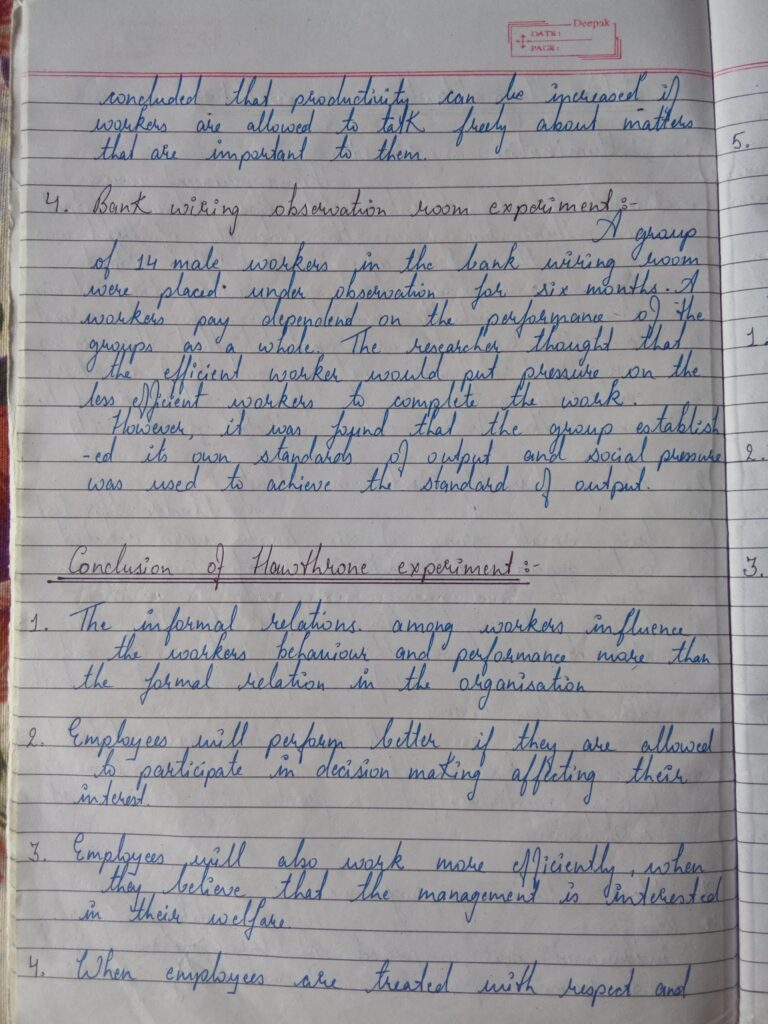 Deepak
DATE:
PAGE:
concluded that productivity can be increased if
workers are allowed to talk freely about matters
that are important to them.
5.
4. Bank wiring observation room experiment :-
A group
of 14 male workers in the bank wiring room
were placed under observation for six months. A
workers pay dependend on the performance of the
groups as a whole. The researcher thought that
1.
the efficient worker would put pressure on the
less efficient workers to complete the work.
However, it was found that the group establish
-ed its own standards of output and social pressure
2.
was used to achieve the standard of output.
Conclusion of Hawthrone experiment :-
3.
1. The informal relations. among workers influence
the workers behaviour and performance more than
the formal relation in the organisation
2. Employees will perform better if they are allowed
to participate in decision making affecting their
interest.
3. Employees will also work more efficiently, when
they believe that the management is interested
in their welfare.
4. When employees are treated with respect and